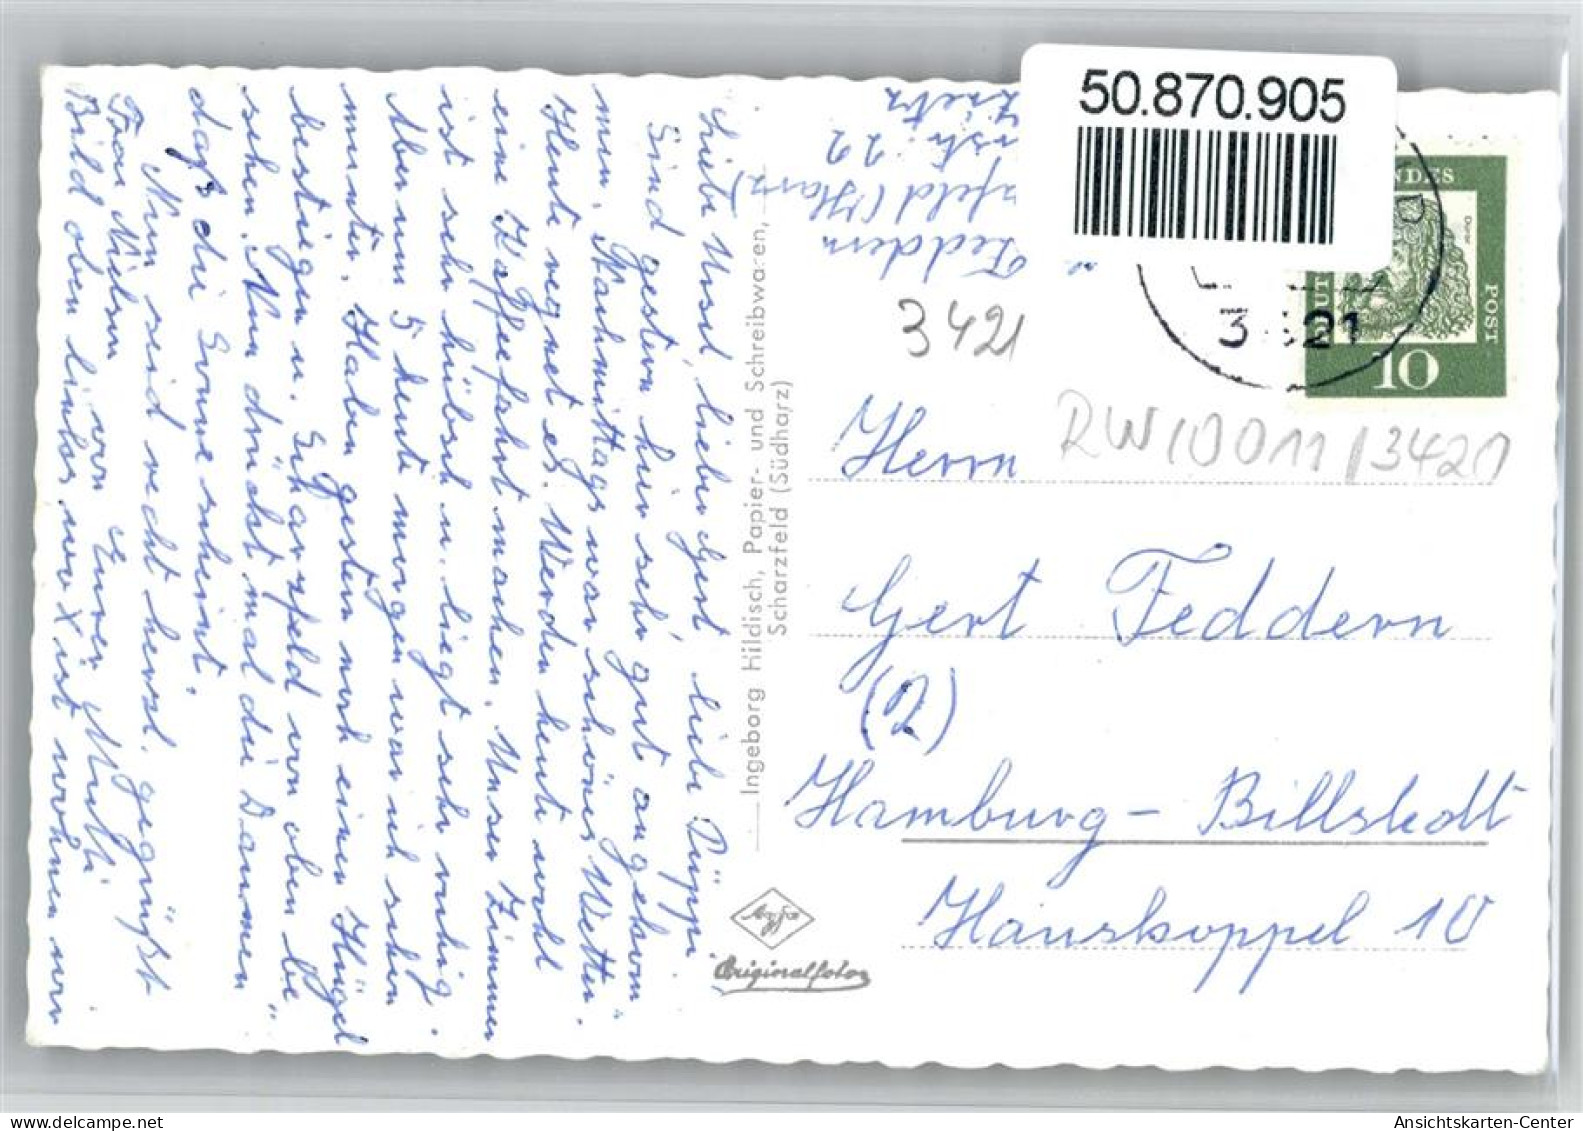 50.870.905
Feddern
feld (Harz)
str. 22
3421
NDES
POST
Dürer
UT
10
3 21
RW10011/3421
Herrn
Gert Feddern
(2)
Hamburg-Billstedt
Hauskoppel 10
Ingeborg Hildisch, Papier- und Schreibwaren,
Scharzfeld (Südharz)
Agfa
Originalfoto
Liebe Ursel, lieber Gert, liebe Püppi.
Sind gestern hier sehr gut angekom-
men, Nachmittags war schönes Wetter.
Heute regnet es. Werden heute wohl
eine Kaffeefahrt machen. Unser Zimmer
ist sehr hübsch u. liegt sehr ruhig.
Aber um 5 heute morgen war ich schon
munter. Haben gestern noch einen Hügel
bestiegen u. Scharzfeld von oben be-
sehen. Nun drückt mal die Daumen
daß die Sonne scheint.
Nun seid recht herzl. gegrüßt
von Eurer Mutti
Frau Nielsen
Bild oben links wo x ist wohnen wir
Ansichtskarten-Center
www.delcampe.net